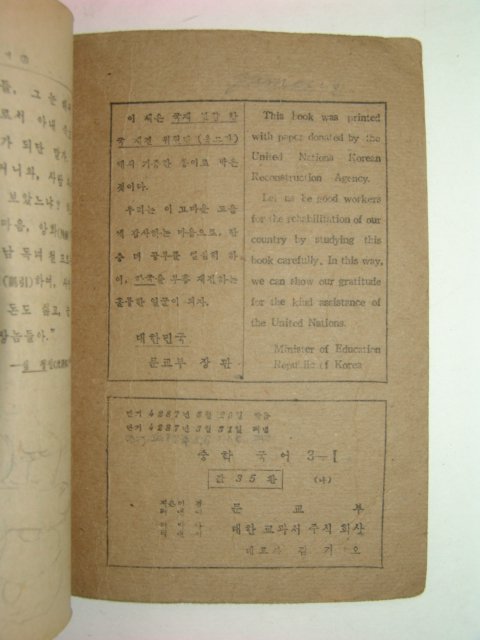 들, 그 는
로서 아내
가 되만 말
머니와, 사람
보았느냐?
마음, 앙화
남 독녀
하며,
돈도 싫고,
망눔들아."
이 책은 국제 연합 한
국 재건 위원단 (운끄라)
에서 기증한 종이로 박은
것이다.
우리는 이 고마운 도움
에 감사하는 마음으로, 한
층 더 공부를 열심히 하
여, 한국을 부흥 재건하는
훌륭한 일군이 되자.
대한민국
문교부 장관
This book was printed
with paper donated by the
United Nations Korean
Reconstruction Agency.
Let us be good workers
for the rehabilitation of our
country by studying this
book carefully. In this way,
we can show our gratitude
for the kind assistance of
the United Nations.
Minister of Education
Republic of Korea
단기 4287년 3월
단기 4287년 3월 31일 펴냄
중학 국어 3-Ⅰ
값 35환 (나)
문교부
대한 교과서 주식 회사
대표자 김기오